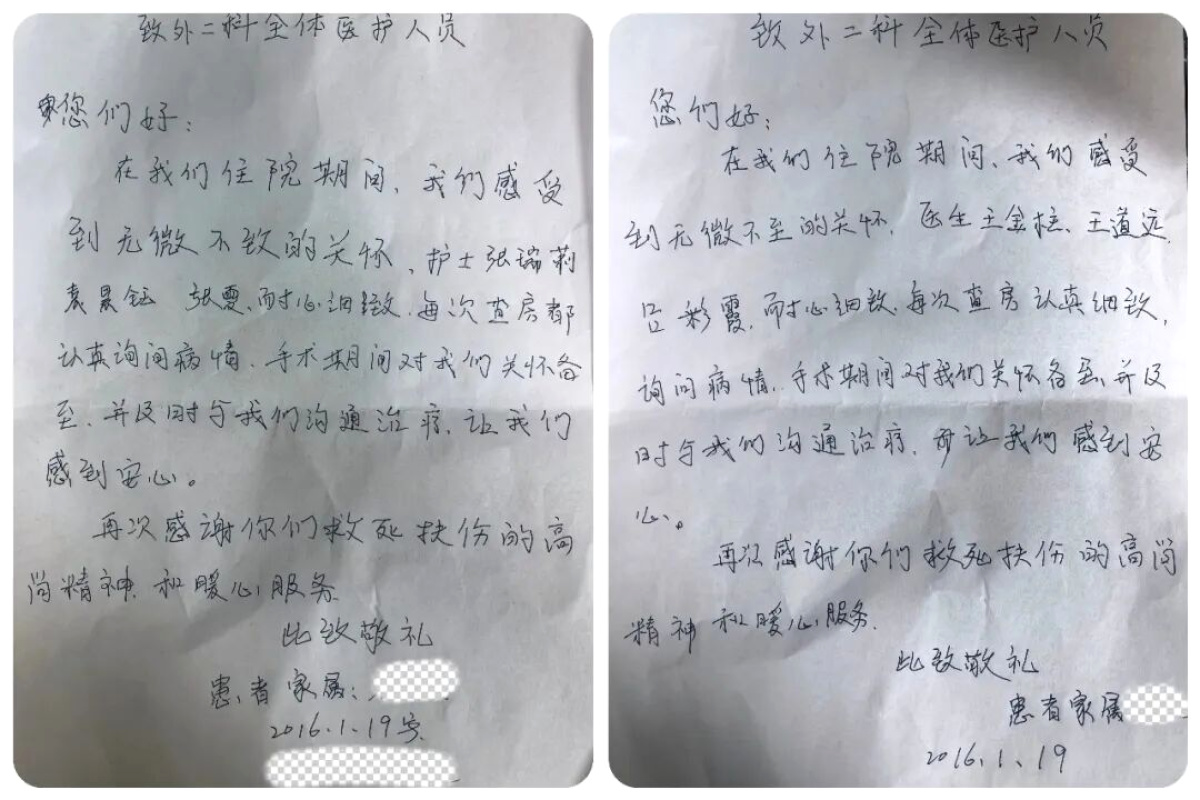 致外二科全体医护人员
您们好：
在我们住院期间、我们感受
到无微不致的关怀、护士张瑞莉
张霞、耐心细致、每次查房都
认真询问病情、手术期间对我们关怀备
至、并及时与我们沟通治疗、让我们
感到安心。
再次感谢你们救死扶伤的高
尚精神和暖心服务
此致敬礼
患者家属：
2016.1.19
致外二科全体医护人员
您们好；
在我们住院期间、我们感受
到无微不至的关怀、医生王金柱、王道远、
吕彩霞、耐心细致、每次查房认真细致、
询问病情、手术期间对我们关怀备至、并及
时与我们沟通治疗、让我们感到安
心。
再次感谢你们救死扶伤的高尚
精神和暖心服务.
此致敬礼
患者家属
2016.1、19